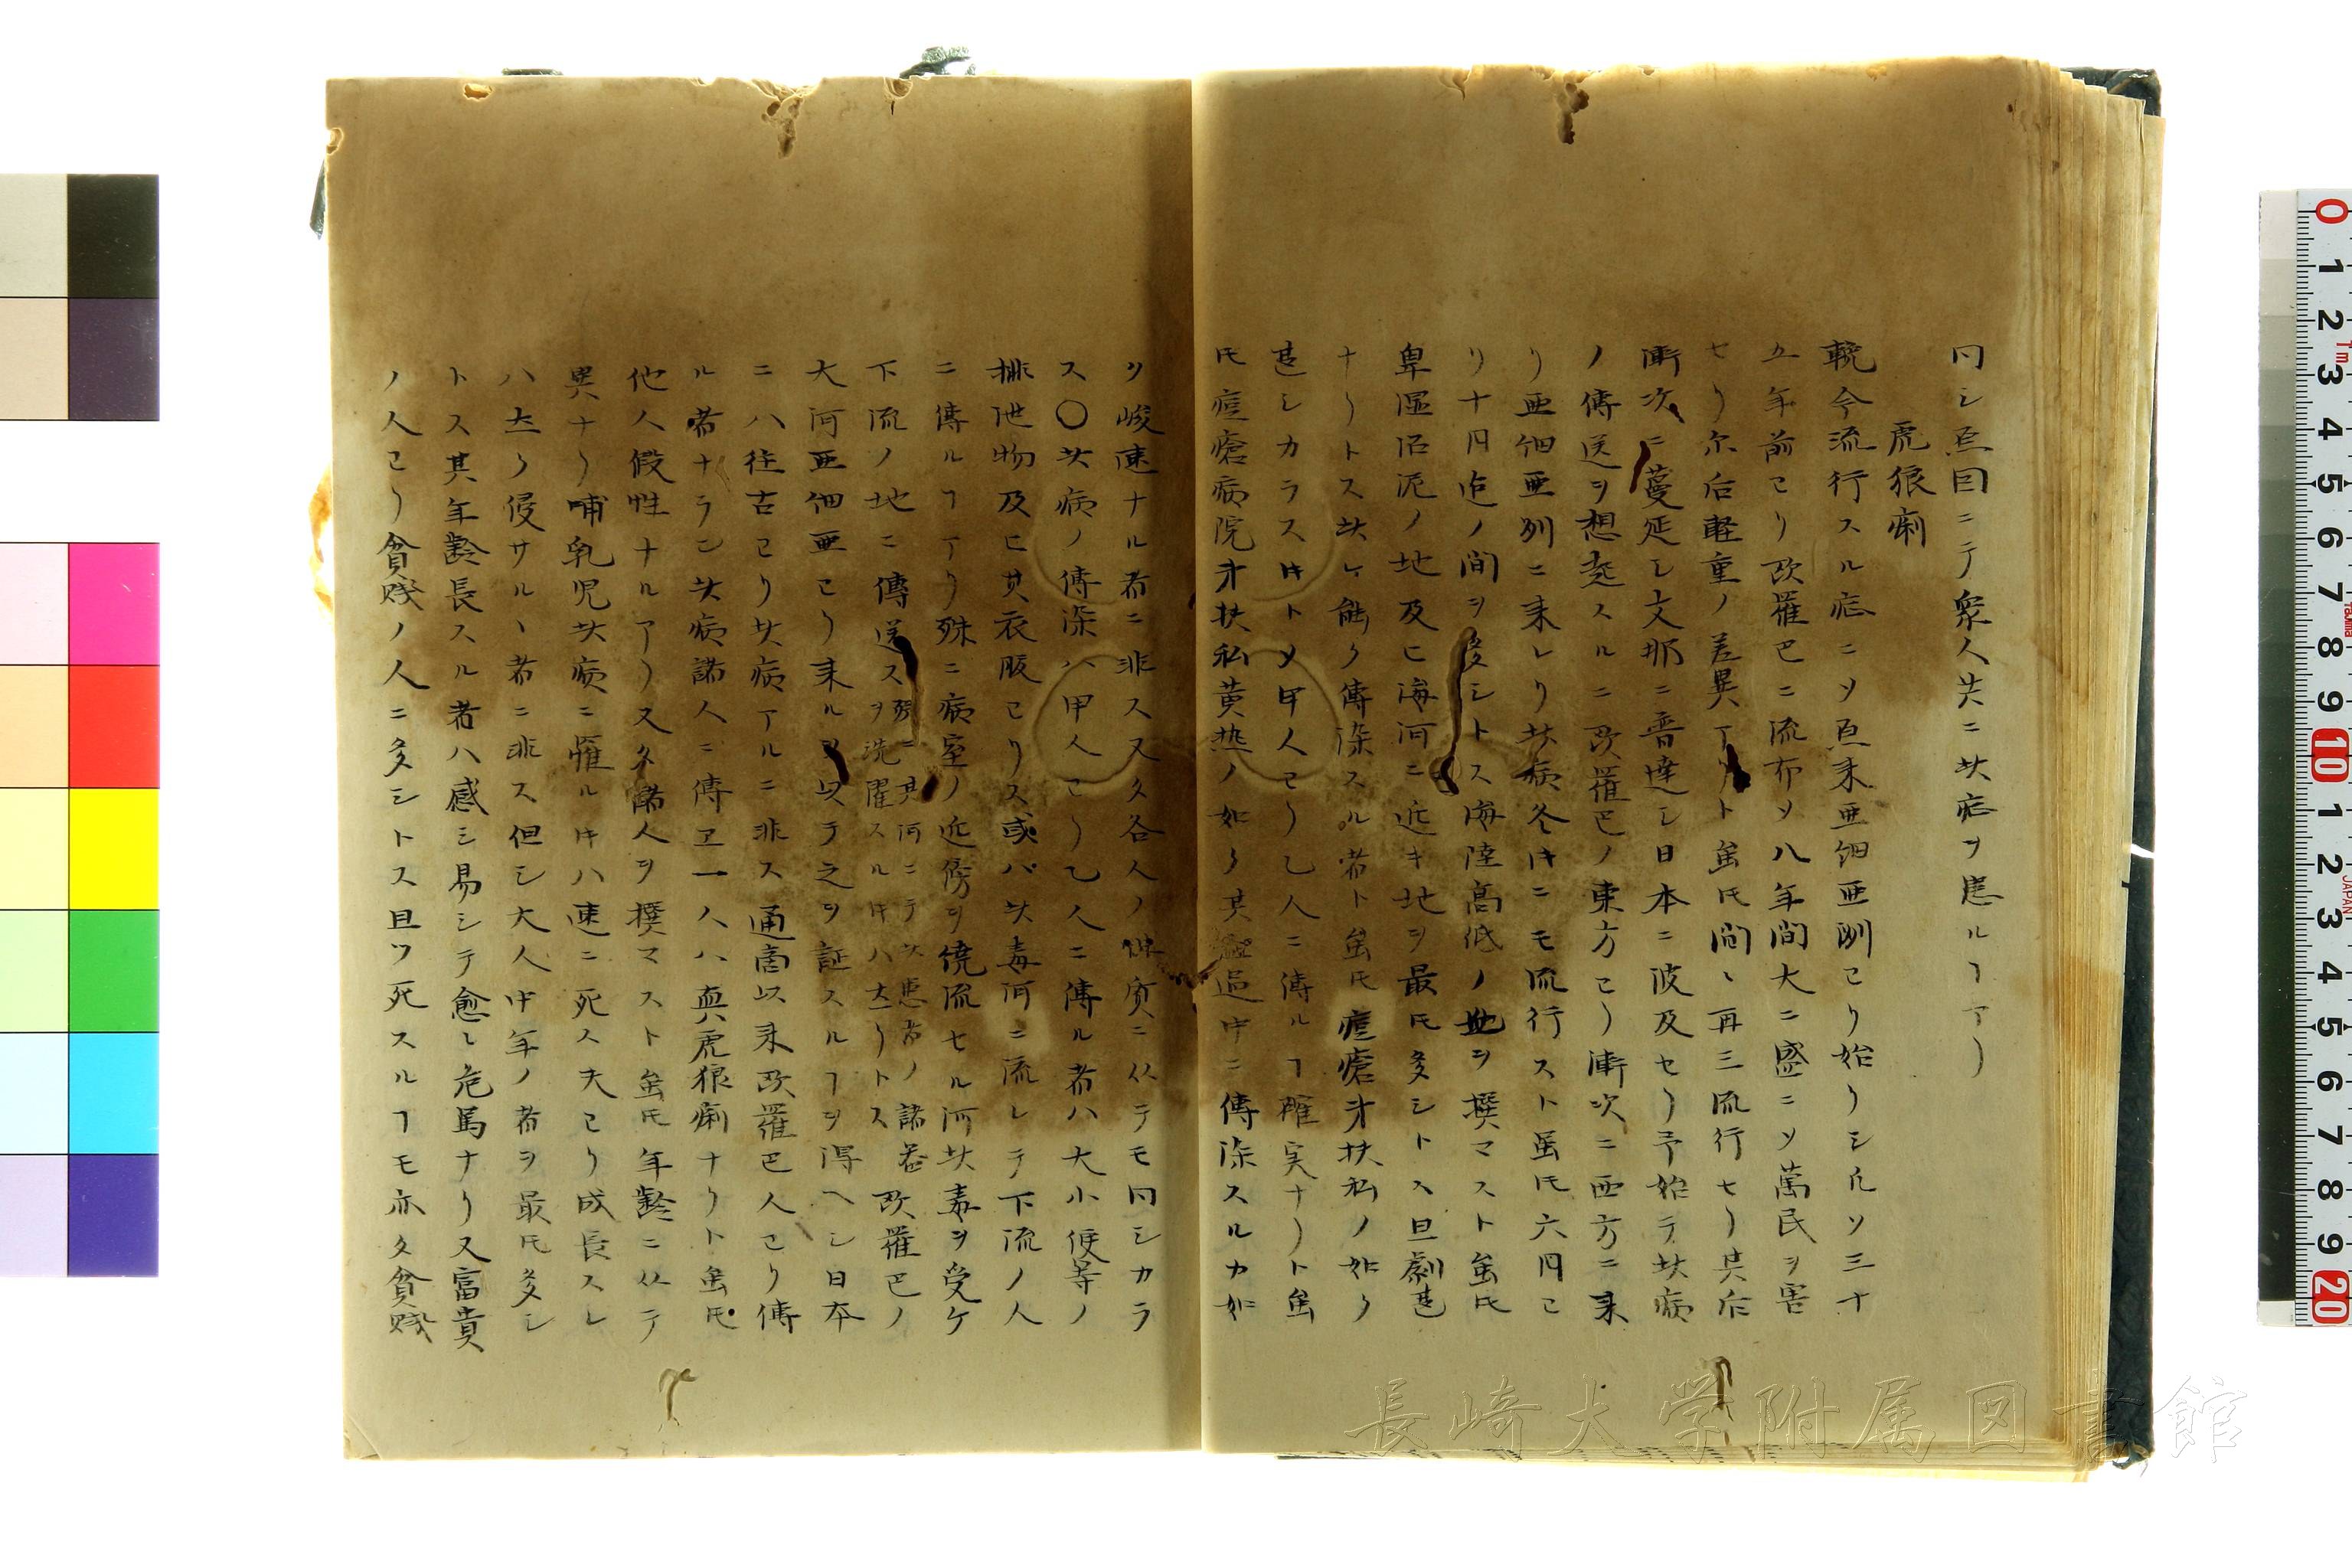 同シ原因ニテ衆人共ニ此症ヲ患ルヿアリ
虎狼痢
輓今流行スル症ニシテ原来亜細亜洲ヨリ始リシ凡ソ三十
五年前ヨリ欧羅巴ニ流布シ八年間大ニ盛ニシテ萬民ヲ害
セリ尓后軽重ノ差異アリト虽𪜈間々再三流行セリ其后
漸次ニ蔓延シ支那ニ普達シ日本ニ波及セリ予始テ此病
ノ傳送ヲ想考スルニ欧羅巴ノ東方ヨリ漸次ニ西方ニ来
リ亜細亜列ニ来レリ此病冬時ニモ流行スト虽𪜈六月ヨ
リ十月迠ノ間ヲ多シトス海陸高低ノ地ヲ撰マスト虽𪜈
卑湿沼泥ノ地及ヒ海河ニ近キ地ヲ最𪜈多シトス且劇甚
ナリトス此レ能ク傳染スル者ト虽𪜈痘瘡才扶私ノ如ク
甚シカラス時トシテ甲人ヨリ乙人ニ傳ルヿ確実ナリト虽
𪜈痘瘡病院才扶私黄熱ノ如ク其 過中ニ傳染スルカ如
ク峻速ナル者ニ非ス又タ各人ノ体質ニ从テモ同シカラ
ス〇此病ノ傳染ハ甲人ヨリ乙人ニ傳ル者ハ大小便等ノ
排泄物及ヒ其衣服ヨリス或ハ此毒河ニ流レテ下流ノ人
ニ傳ルヿアリ殊ニ病室ノ近傍ヲ繞流セル河此毒ヲ受ケ
下流ノ地ニ傳送ス 殊ニ其河ニテ此患者ノ諸器ヲ洗濯スル時ハ大リトス 欧羅巴ノ
大河亜細亜ヨリ来ルヲ以テ之ヲ証スルヿヲ得ヘシ日本
ニハ往古ヨリ此病アルニ非ス通商以来欧羅巴人ヨリ傳
ル者ナラン此病諸人ニ傳ヱ一人ハ真虎狼痢ナリト虽𪜈
他人假性ナルアリ又タ諸人ヲ撰マスト虽𪜈年齢ニ从テ
異ナリ哺乳児此病ニ罹ル時ハ速ニ死ス夫ヨリ成長スレ
ハ大ク侵サルヽ者ニ非ス但シ大人中年ノ者ヲ最𪜈多シ
トス其年齢長スル者ハ感シ易シテ愈シ危篤ナリ又富貴
ノ人ヨリ貧賤ノ人ニ多シトス且ツ死スルヿモ亦タ貧賤
長崎大学附属図書館